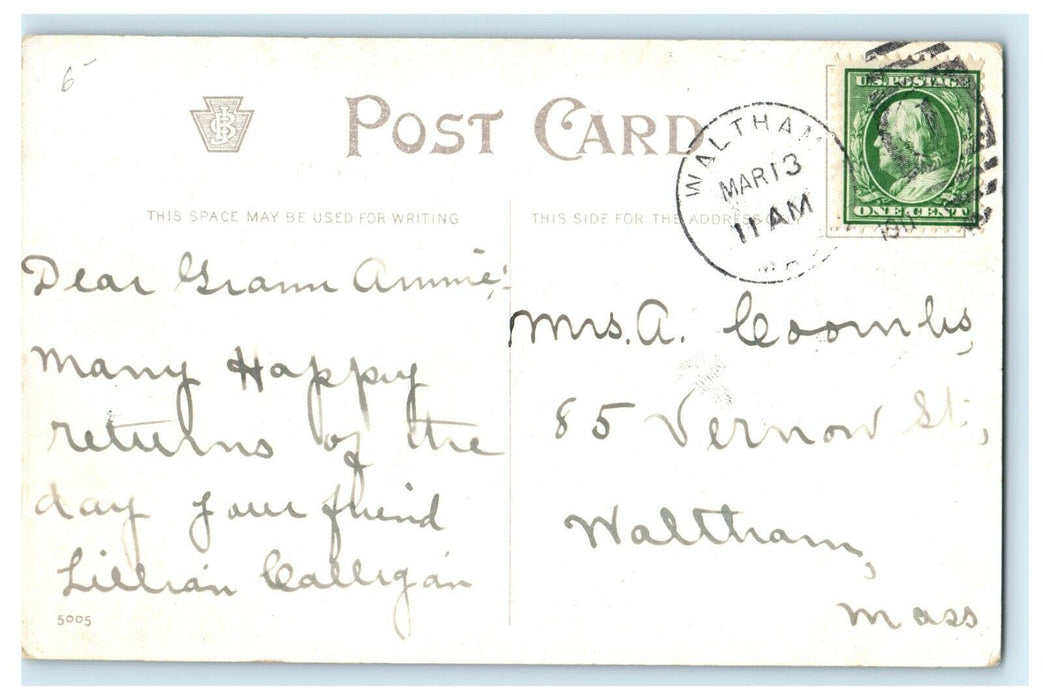 6
JSC
POST CARD
THIS SPACE MAY BE USED FOR WRITING
THIS SIDE FOR THE ADDRESS
WALTHAM
MAR 13
11 AM
1911
U.S. POSTAGE
ONE CENT
Dear Grann Annie,
Many Happy
returns of the
day your friend
Lillian Calligan
5005
Mrs. A. Coombs,
85 Vernon St,
Waltham,
Mass